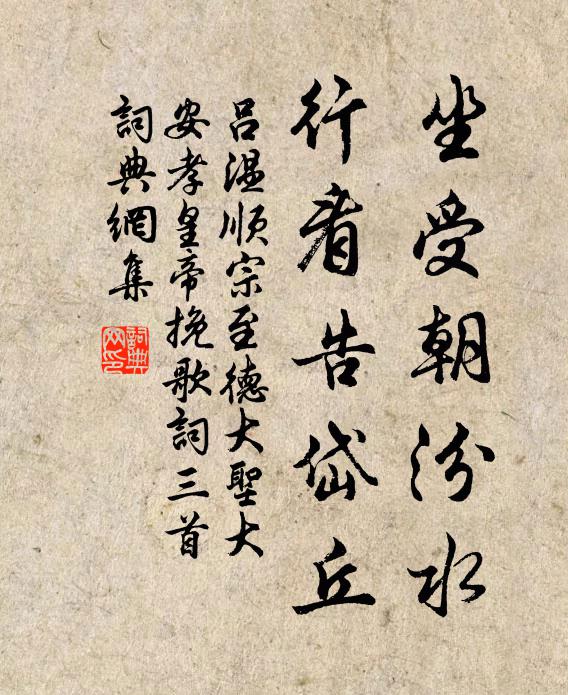 坐受朝汾水
行看告岱丘
吕温顺宗至德大聖大
安孝皇帝挽歌詞三首
詞典網集
詞典網印